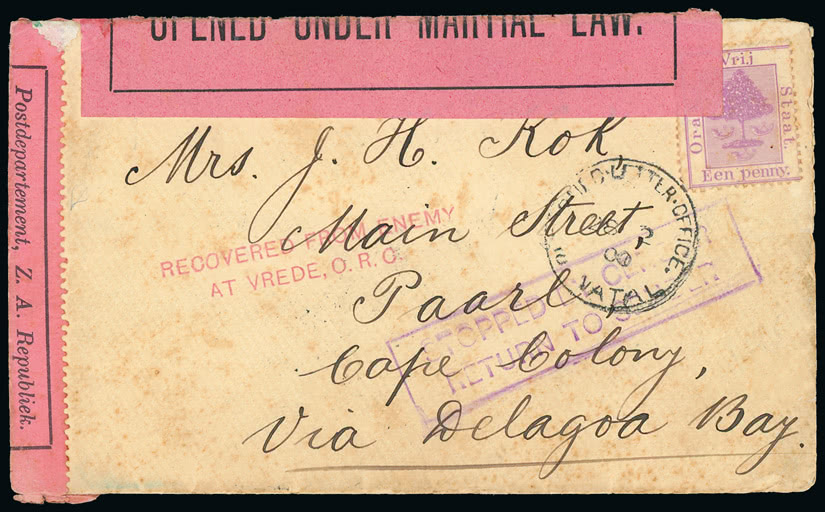 OPENED UNDER MARTIAL LAW.
Vrij
Staat.
Een penny.
Postdepartement, Z. A. Republiek.
Mrs. J. H. Kok
Main Street
Paarl,
Cape Colony,
Via Delagoa Bay.
RECOVERED FROM ENEMY
AT VREDE, O. R. C.
OFFICE.
NATAL
STOPPED
RETURN TO